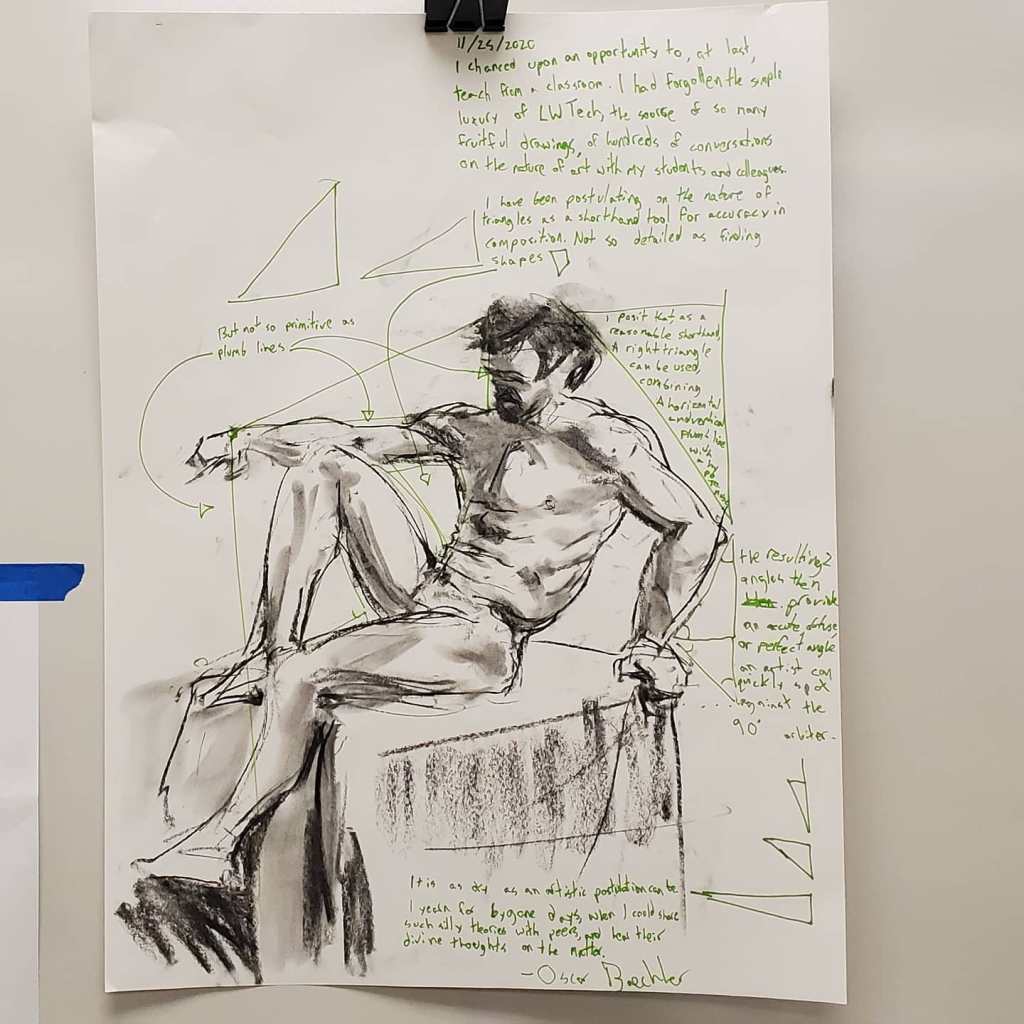 11/25/2020
I chanced upon an opportunity to, at last,
teach from a classroom. I had forgotten the simple
luxury of LWTech, the source of so many
fruitful drawings, of hundreds of conversations
on the nature of art with my students and colleagues.
I have been postulating on the nature of
triangles as a shorthand tool for accuracy in
composition. Not so detailed as finding
shapes
But not so primitive as
plumb lines
I posit that as a
reasonable shorthand,
A right triangle
can be used,
combining
A horizontal
and vertical
plumb line
with
a hy
po
the resulting 2
angles then
provide
an acute, obtuse,
or perfect angle
an artist can
quickly spot
... against the
90° arbiter.
It is as dry as an artistic postulation can be
I yearn for bygone days, when I could share
such silly theories with peers, and hear their
divine thoughts on the matter.
- Oscar Baechler